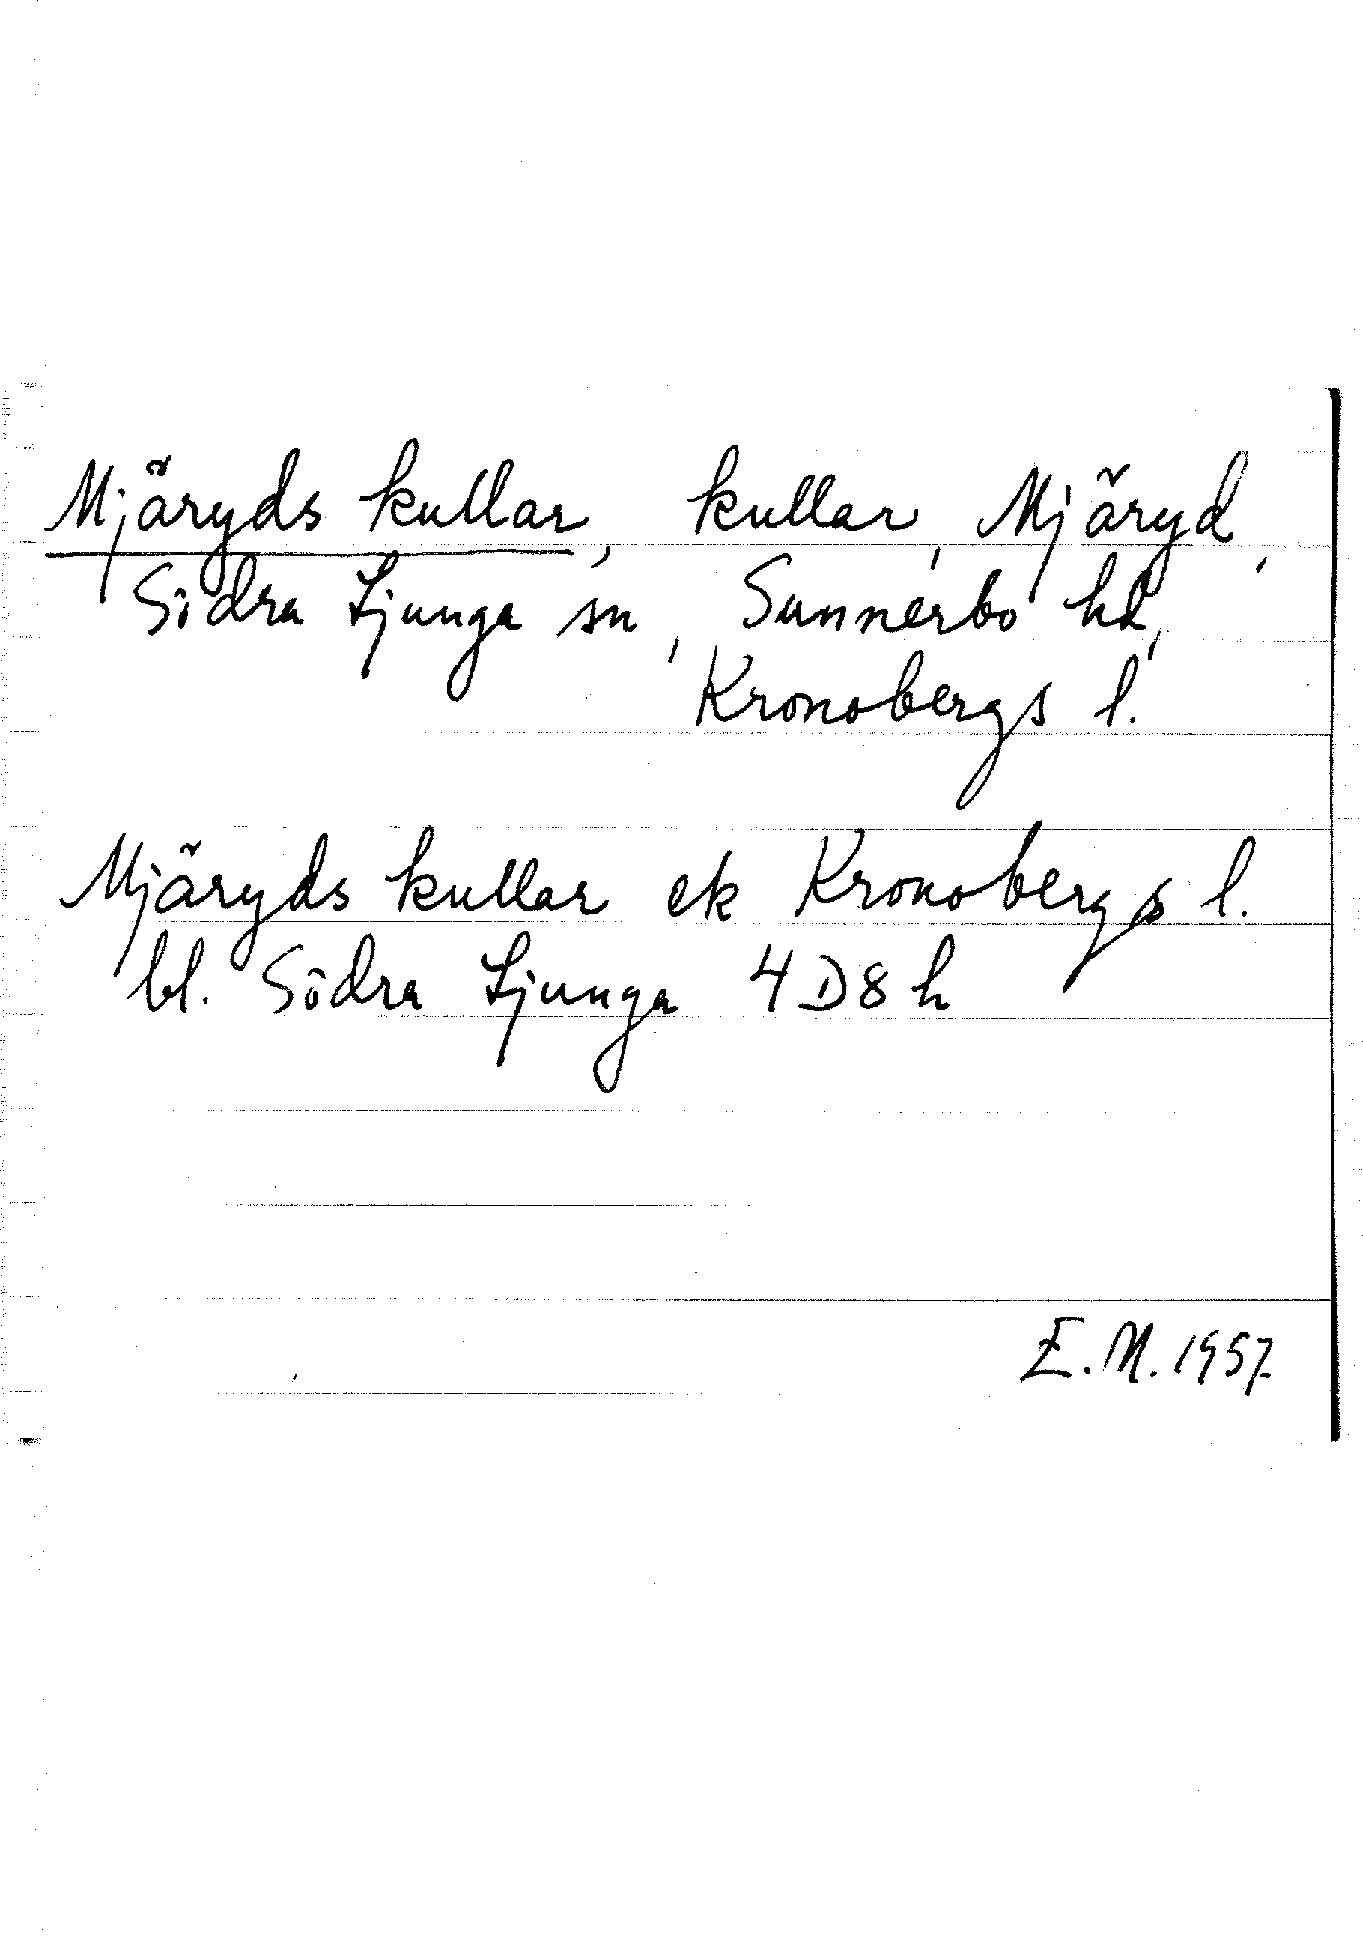 Mjäryds kullar, kullar, Mjäryd,
Södra Ljunga sn, Sunnerbo hd,
Kronobergs l.
Mjäryds kullar ek Kronobergs l.
bl. Södra Ljunga 4D8h
E.M. 1957